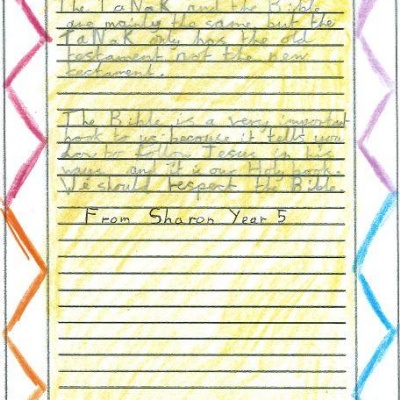 The TaNaK and the Bible
are mainly the same but the
TaNaK only has the old
testament not the new
testament.
The Bible is a very important
book to us because it tells you
how to follow Jesus in his
ways and it is our Holy book.
We should respect the Bible
From Sharon Year 5